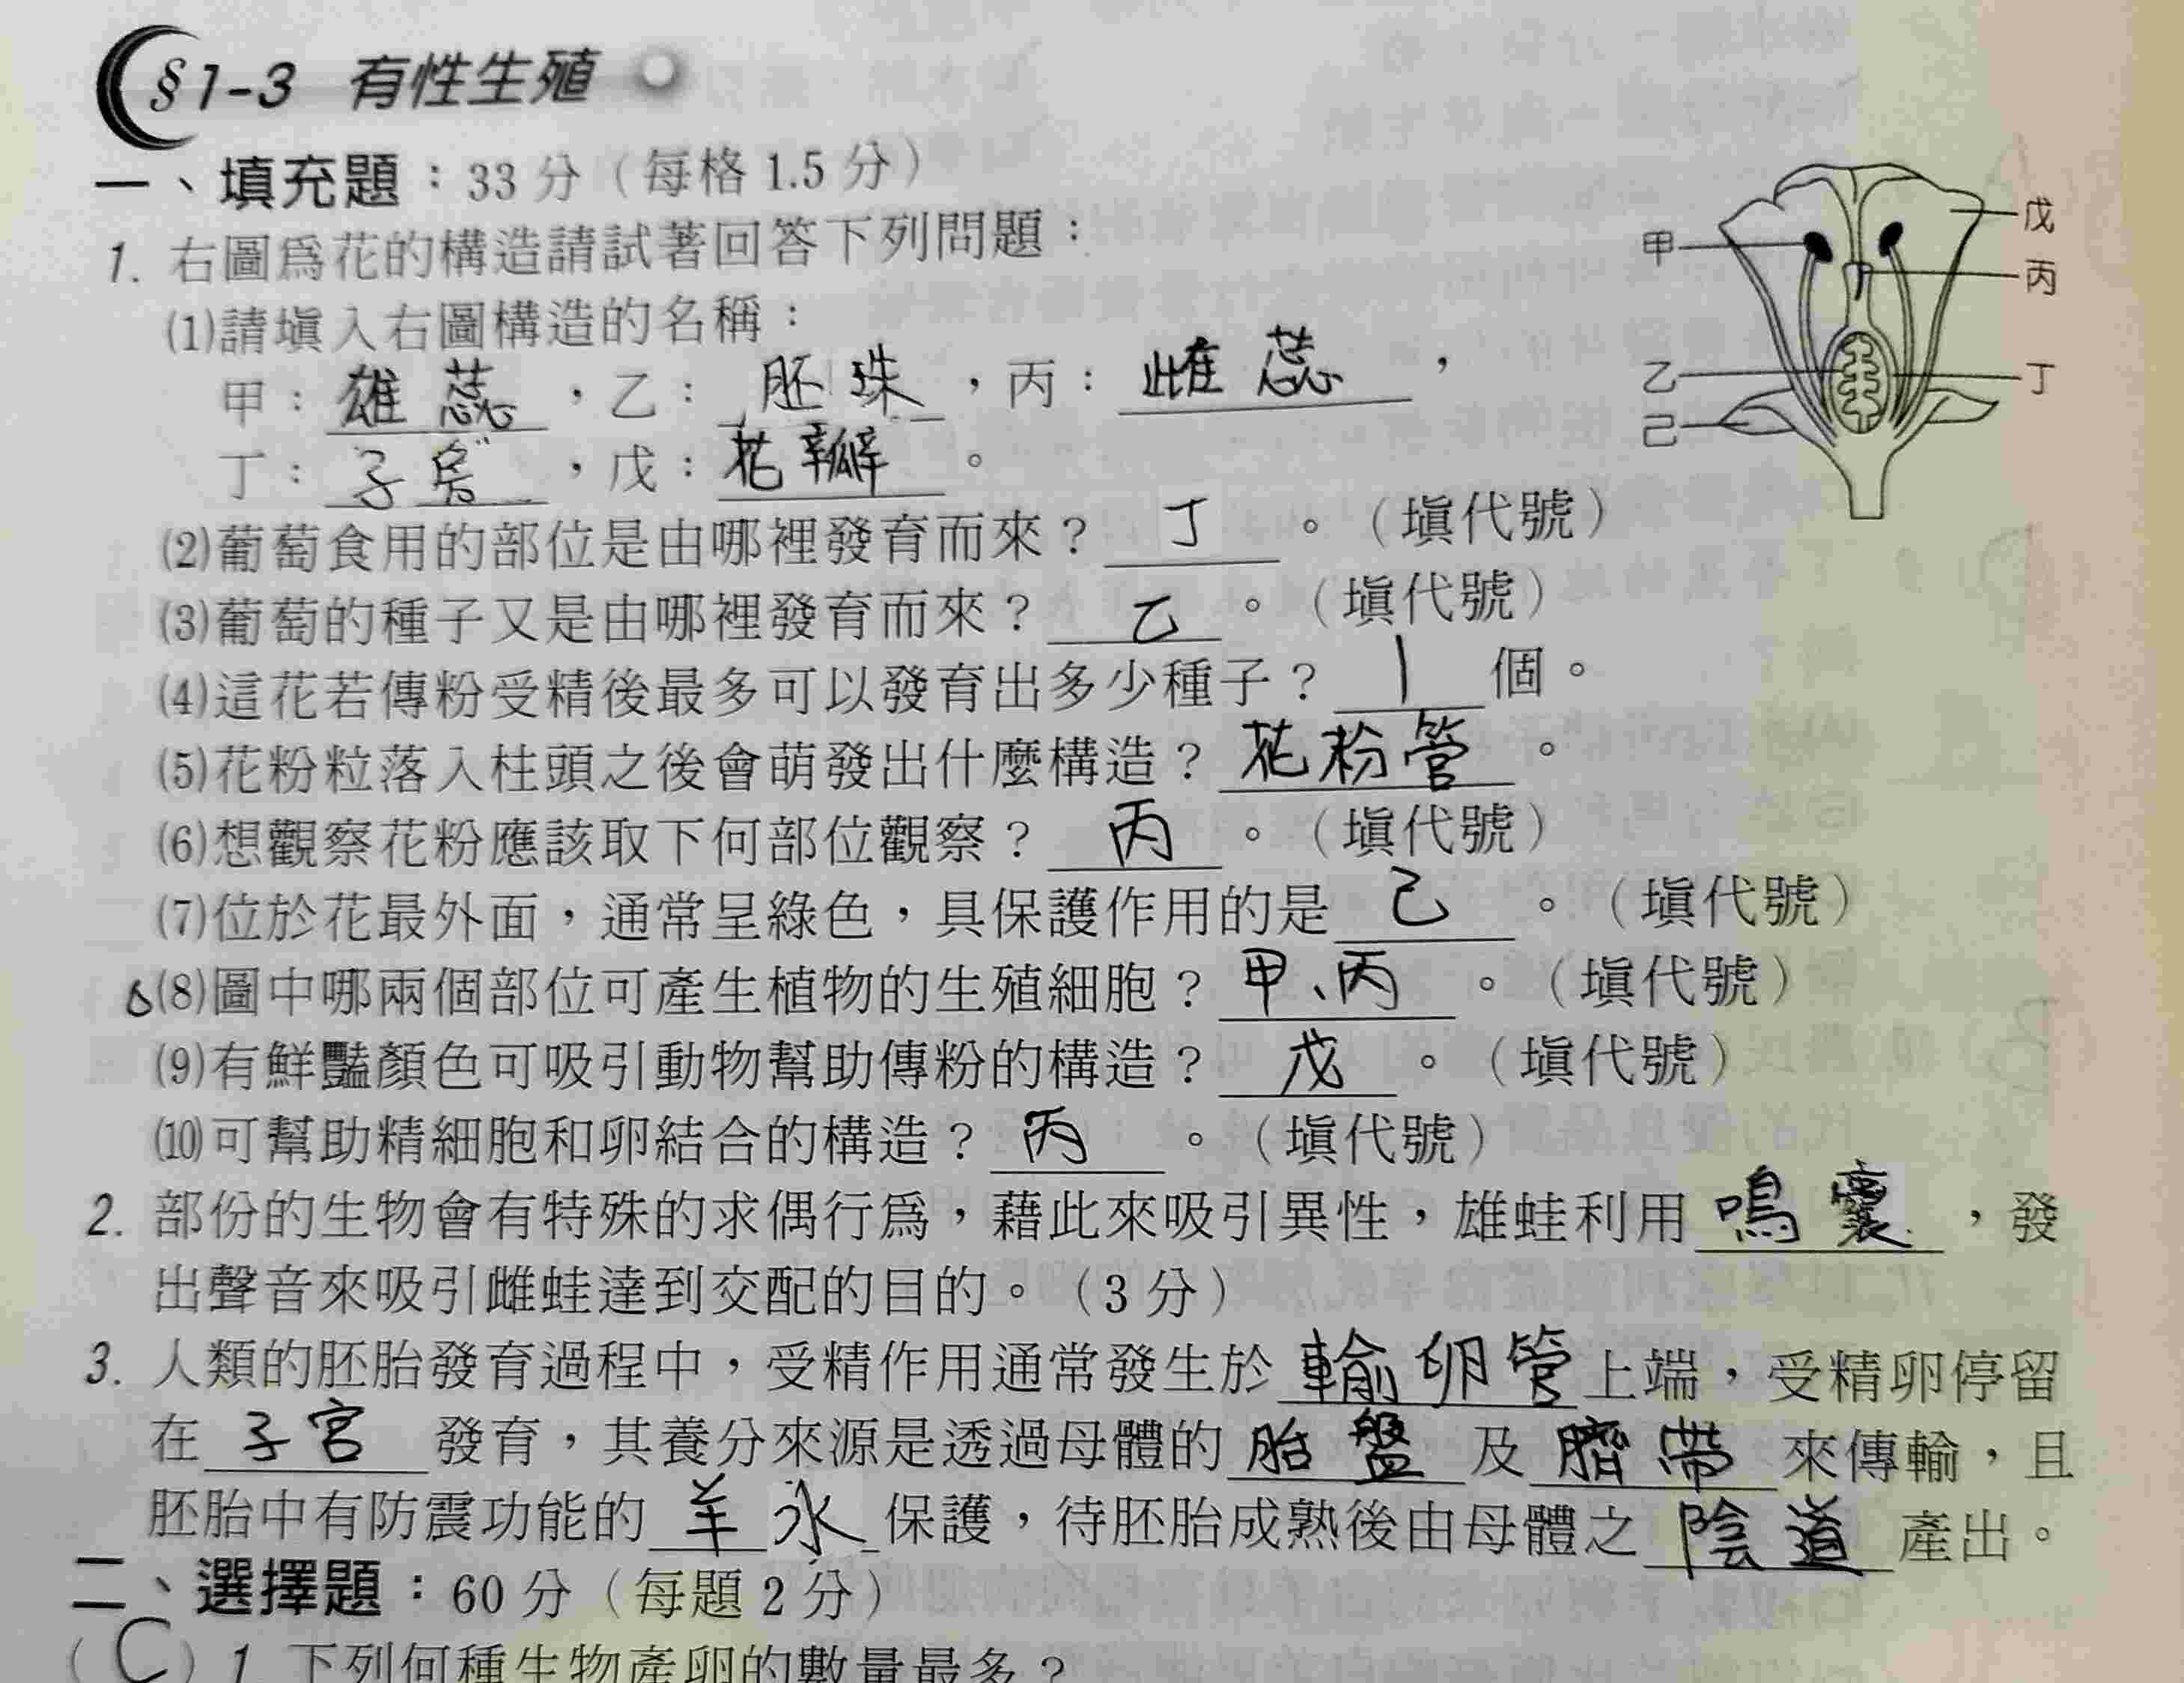 §1-3 有性生殖
一、填充題：33分（每格1.5分）
1. 右圖爲花的構造請試著回答下列問題：
(1)請塡入右圖構造的名稱：
甲：雄蕊，乙：胚珠，丙：雌蕊，
丁：子房，戊：花瓣。
甲
乙
己
戊
丙
丁
(2)葡萄食用的部位是由哪裡發育而來？丁。（塡代號）
(3)葡萄的種子又是由哪裡發育而來？乙。（塡代號）
(4)這花若傳粉受精後最多可以發育出多少種子？1個。
(5)花粉粒落入柱頭之後會萌發出什麼構造？花粉管。
(6)想觀察花粉應該取下何部位觀察？丙。（塡代號）
(7)位於花最外面，通常呈綠色，具保護作用的是己。（塡代號）
(8)圖中哪兩個部位可產生植物的生殖細胞？甲、丙。（塡代號）
(9)有鮮豔顏色可吸引動物幫助傳粉的構造？戊。（塡代號）
(10)可幫助精細胞和卵結合的構造？丙。（塡代號）
2. 部份的生物會有特殊的求偶行爲，藉此來吸引異性，雄蛙利用鳴囊，發
出聲音來吸引雌蛙達到交配的目的。（3分）
3. 人類的胚胎發育過程中，受精作用通常發生於輸卵管上端，受精卵停留
在子宮發育，其養分來源是透過母體的胎盤及臍帶來傳輸，且
胚胎中有防震功能的羊水保護，待胚胎成熟後由母體之陰道產出。
二、選擇題：60分（每題2分）
（C）1. 下列何種生物產卵的數量最多？